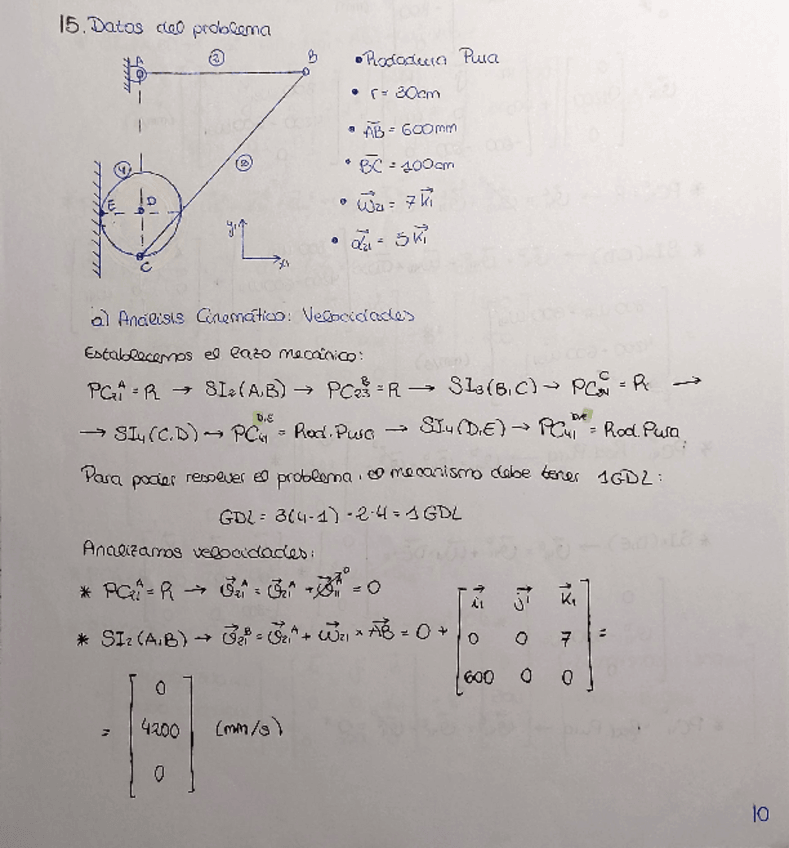 15. Datos del problema
A
②
B
③
④
E
D
C
y₁
x₁
• Rodadura Pura
• r = 30cm
• AB = 600mm
• BC = 100cm
• ω⃗₂₁ = 7k⃗₁
• α⃗₂₁ = 5k⃗₁
a) Análisis Cinemático: Velocidades
Establecemos el lazo mecánico:
PC₂₁ᴬ = R → SI₂(A,B) → PC₂₃ᴮ = R → SI₃(B,C) → PC₃₄ᶜ = R →
→ SI₄(C,D) → PC₄₁ᴰ·ᴱ = Rod. Pura → SI₄(D,E) → PC₄₁ᴰ·ᴱ = Rod. Pura
Para poder resolver el problema, el mecanismo debe tener 1GDL:
GDL = 3(4-1) - 2·4 = 1 GDL
Analizamos velocidades:
* PC₂₁ᴬ = R → v⃗₂₁ᴬ = v⃗₂₁ᴬ + v⃗₁₁ᴬ⁰ = 0
* SI₂(A,B) → v⃗₂₁ᴮ = v⃗₂₁ᴬ + ω⃗₂₁ × AB = 0 + [ i⃗₁ j⃗₁ k⃗₁
0 0 7
600 0 0 ] =
= [ 0
4200
0 ] (mm/s)
10